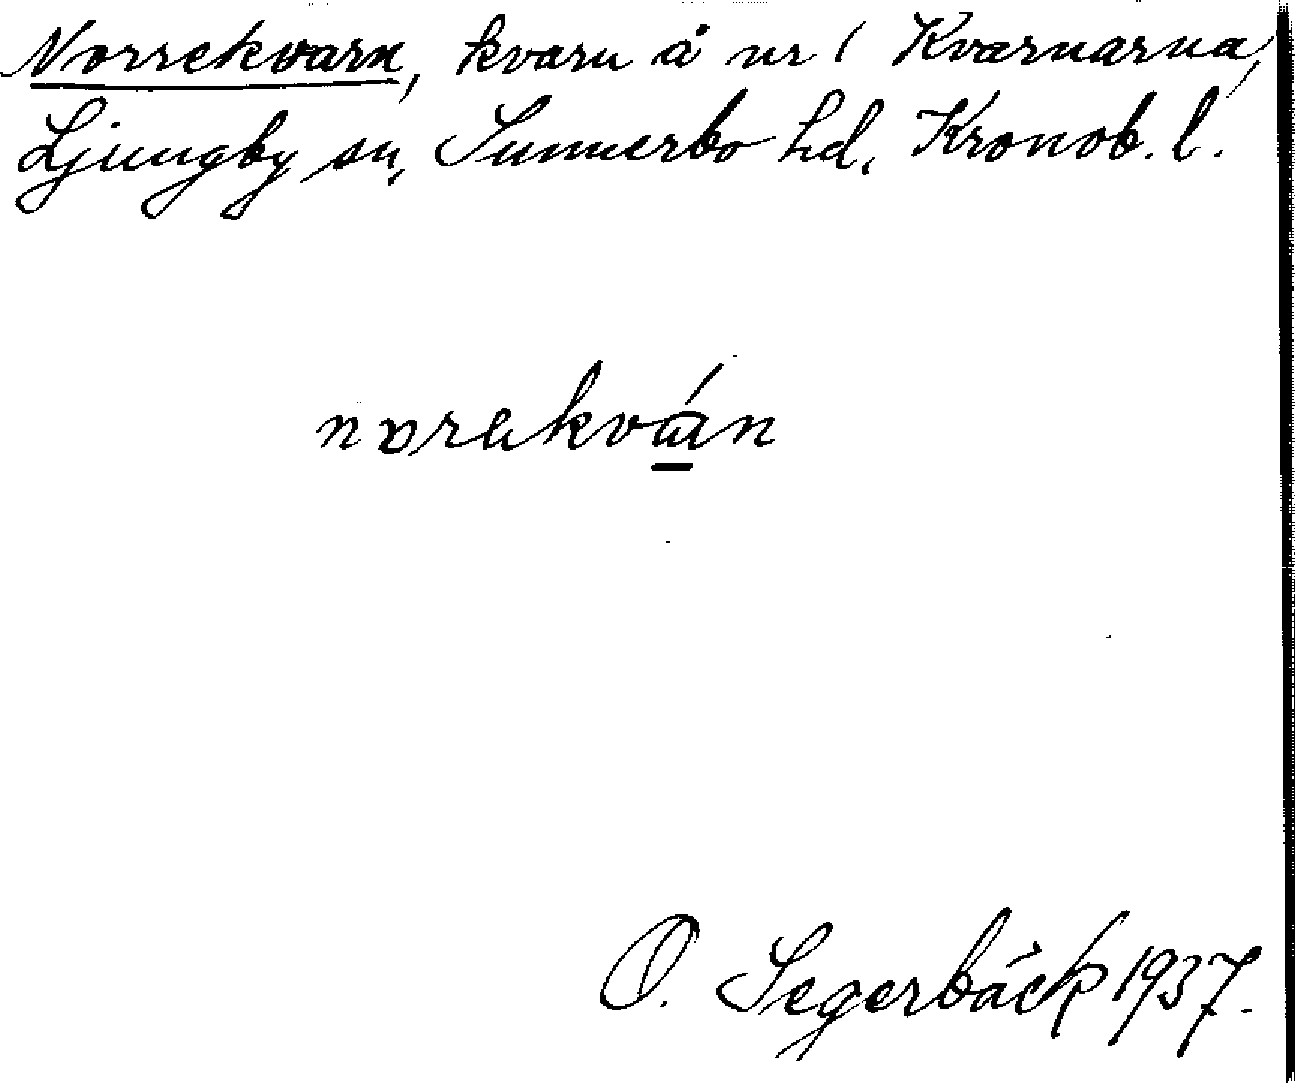 Norrekvarn, kvarn å nr 1 Kvarnarna,
Ljungby sn, Sunnerbo hd, Kronob. l.
norekván
O. Segerbäck 1937.